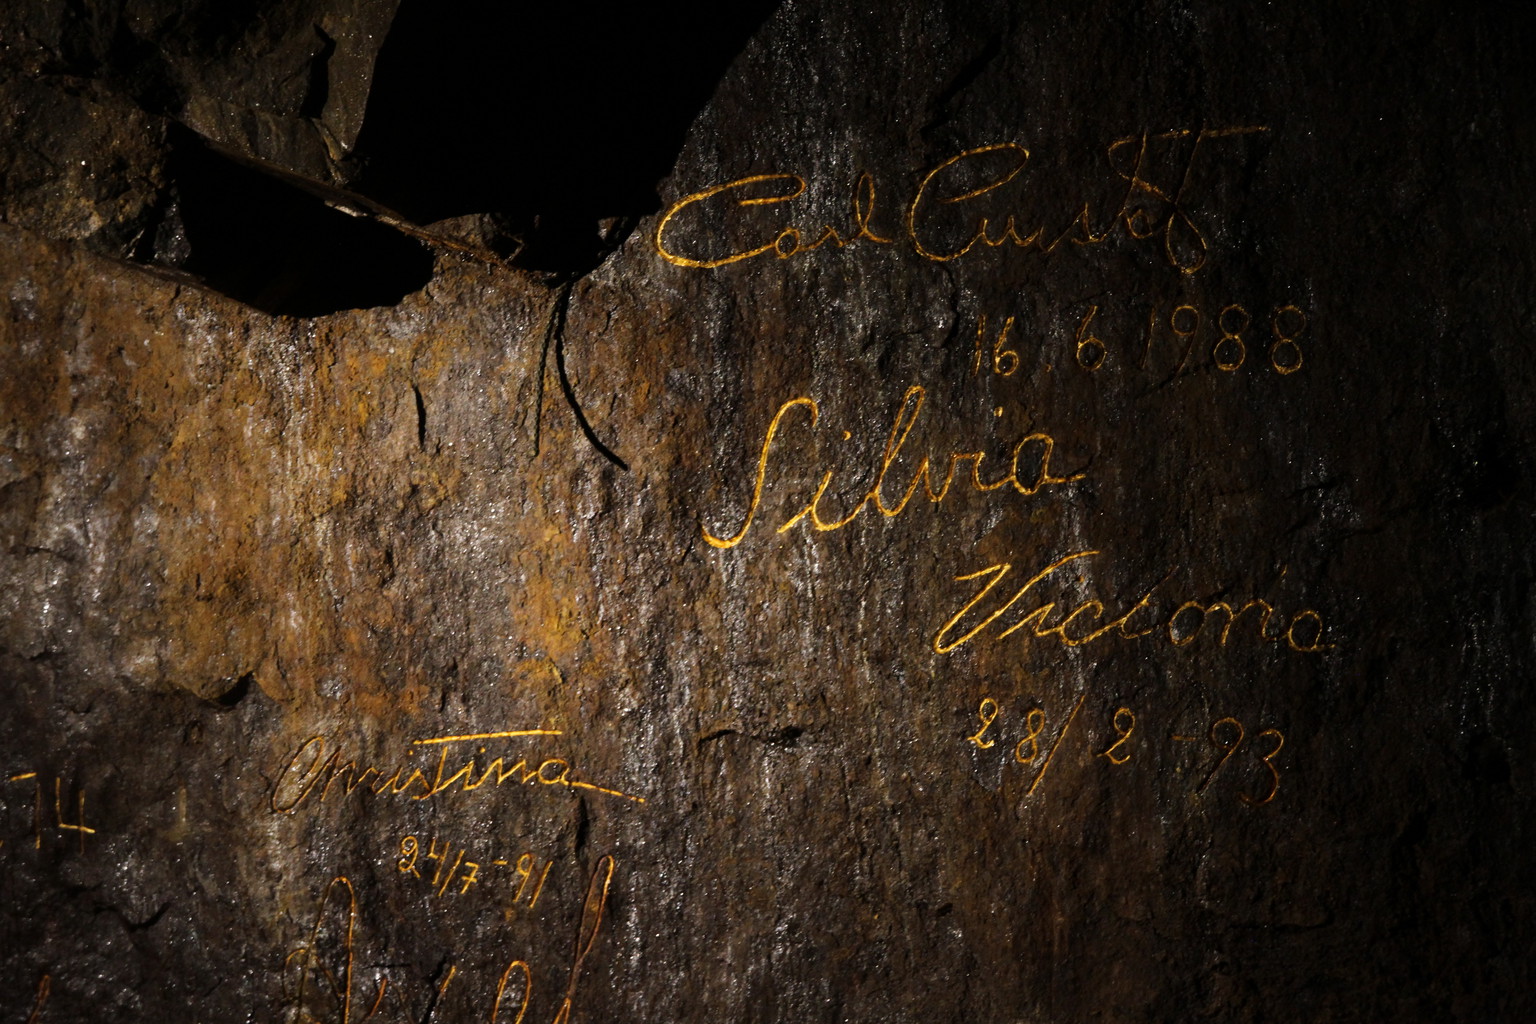 Carl Gustaf
16.6 1988
Silvia
Victoria
28/2-93
Christina
14
24/7-91